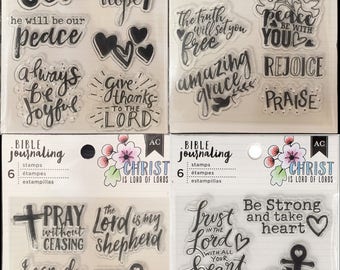 he will be our
peace
always
be
joyful
give
thanks
to the
LORD
the truth
will set you
free
peace
BE WITH
YOU
amazing
grace
REJOICE
PRAISE
BIBLE
journaling
AC
6
stamps
étampes
estampillas
CHRIST
IS LORD OF LORDS
PRAY
without
CEASING
The
Lord is my
shepherd
BIBLE
journaling
AC
6
stamps
étampes
estampillas
CHRIST
IS LORD OF LORDS
Trust
in the
Lord
WITH ALL
YOUR
heart
Be Strong
and take
heart